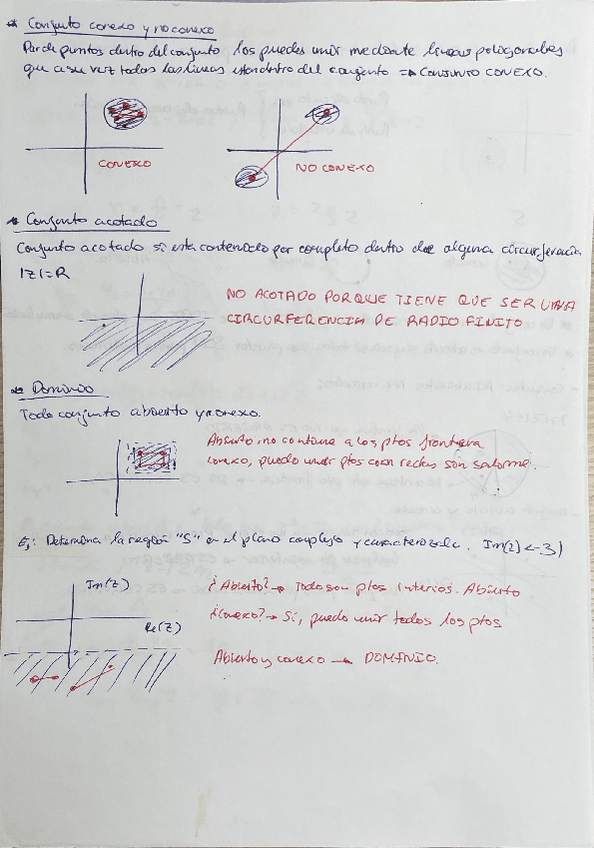 * Conjunto conexo y no conexo
Par de puntos dentro del conjunto los puedes unir mediante lineas poligonales
que a su vez todas las lineas estan dentro del conjunto => CONJUNTO CONEXO.
CONEXO
NO CONEXO
* Conjunto acotado
Conjunto acotado si esta contenido por completo dentro de alguna circunferencia
|z|=R
NO ACOTADO PORQUE TIENE QUE SER UNA
CIRCURFERENCIA DE RADIO FINITO
* Dominio
Todo conjunto abierto y conexo.
Abierto, no contiene a los ptos frontera
conexo, puedo unir ptos con rectas sin salirme.
Ej: Determina la región "S" en el plano complejo y caracterizala. Im(z) < -3)
Im(z)
Re(z)
¿Abierto? → Todo son ptos interios. Abierto
¿Conexo? → Sí, puedo unir todos los ptos
Abierto y conexo → DOMINIO.